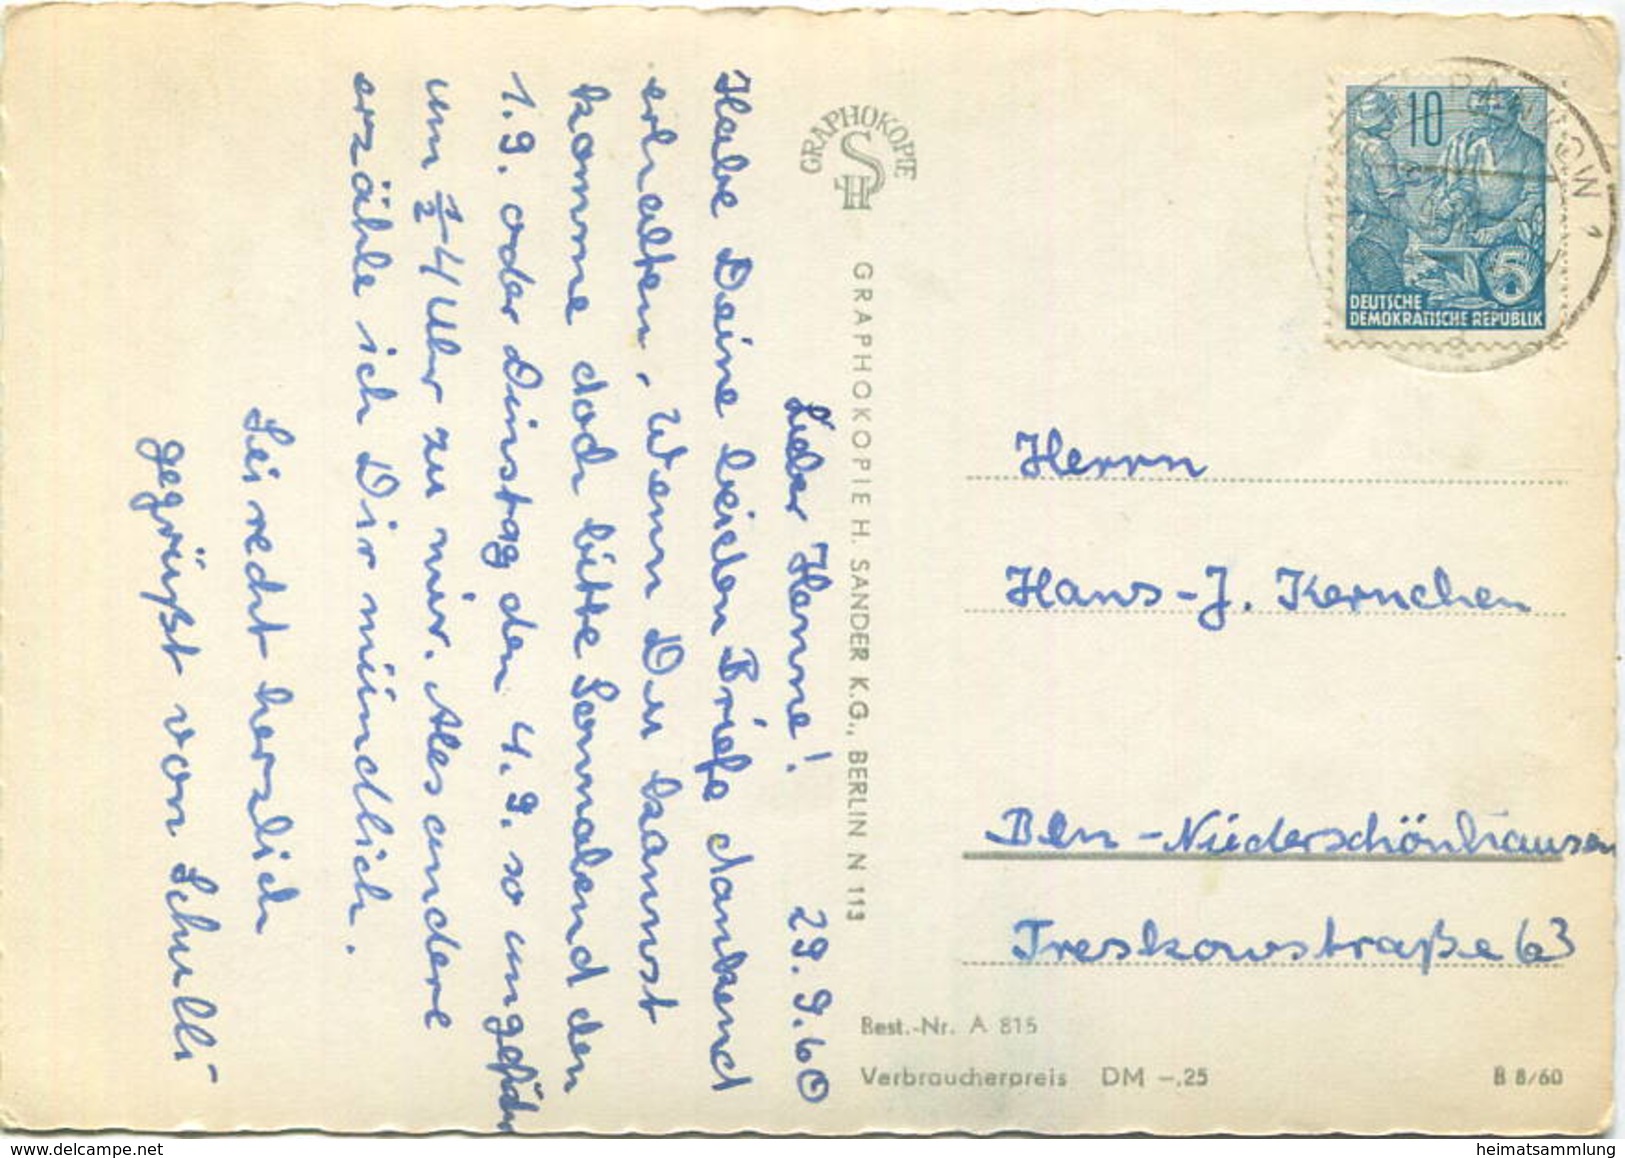 Lieber Hanne! 29.9.60
Habe Deine beiden Briefe dankend
erhalten. Wenn Du kannst
komme doch bitte Sonnabend den
1.9. oder Dinstag den 4.9. so ungefähr
um ½4 Uhr zu mir. Alles andere
erzähle ich Dir mündlich.
Sei recht herzlich
gegrüßt von Schulli
GRAPHOKOPIE
HS
GRAPHOKOPIE H. SANDER K.G., BERLIN N 113
PANKOW 1
10
5
DEUTSCHE
DEMOKRATISCHE REPUBLIK
Herrn
Hans-J. Kernchen
Bln-Niederschönhausen
Treskowstraße 63
Best.-Nr. A 815
Verbraucherpreis DM -,25
B 8/60
delcampe.net
heimatsammlung